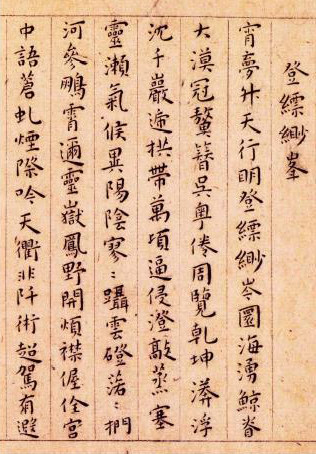 登縹緲峯
宵夢升天行明登縹緲岑圜海湧鯨脊
大漠冠鼇簪吳粵倦周覽乾坤漭浮
沈千巖遞拱帶萬頃逼侵澄歊蒸塞
靈瀨氣候異陽陰寥〻躡雲磴諾〻捫
河參鵬霄邇靈嶽鳳野開煩襟偓佺宮
中語蒼虬煙際吟天衢非阡術超駕有遐